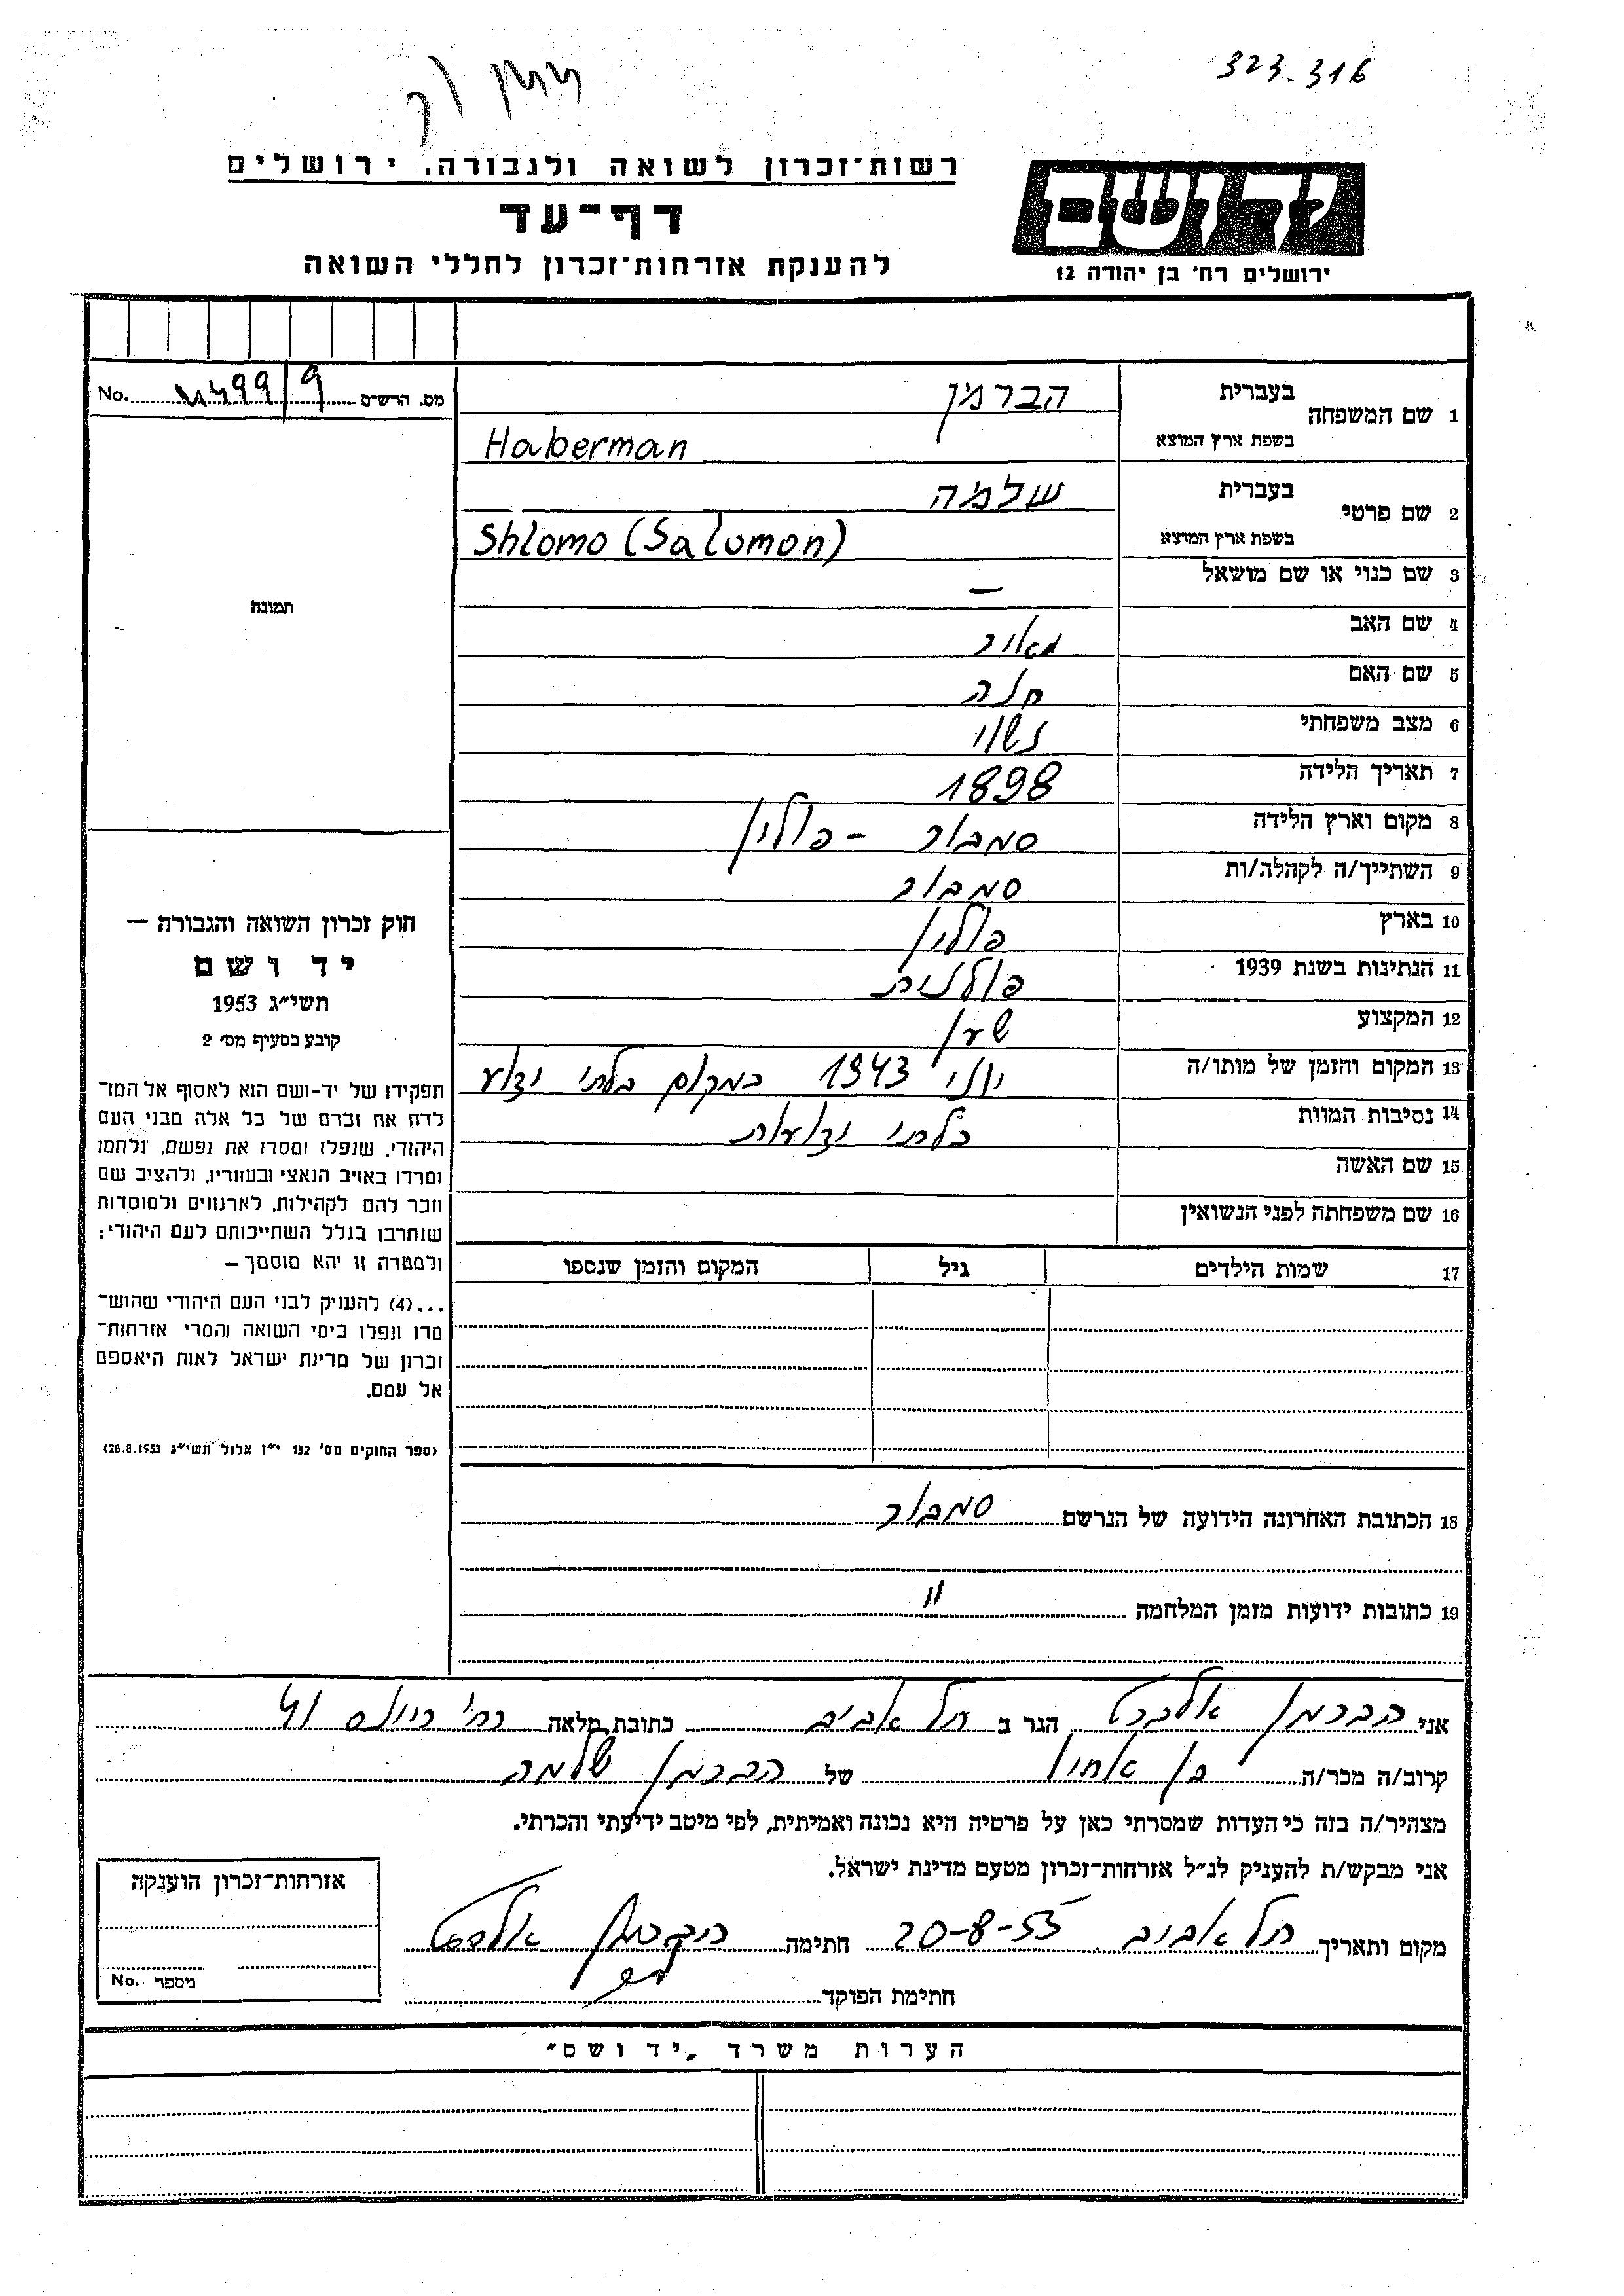 323.316
רשות־זכרון לשואה ולגבורה, ירושלים
יד ושם
דף־עד
ירושלים רח' בן יהודה 12
להענקת אזרחות־זכרון לחללי השואה
מס. הרשים No.
1 שם המשפחה
בעברית הברמן
בשפת ארץ המוצא Haberman
2 שם פרטי
בעברית שלמה
בשפת ארץ המוצא Shlomo (Salomon)
3 שם כנוי או שם מושאל —
תמונה
4 שם האב מאור
5 שם האם חלה
6 מצב משפחתי נשוי
7 תאריך הלידה 1898
8 מקום וארץ הלידה סמבור – פולין
9 השתייך/ה לקהלה/ות סמבור
10 בארץ פולין
11 הנתינות בשנת 1939 פולנית
12 המקצוע שען
13 המקום והזמן של מותו/ה יולי 1943 במקום בלתי ידוע
14 נסיבות המוות בלתי ידועות
15 שם האשה
16 שם משפחתה לפני הנשואין
17 שמות הילדים גיל המקום והזמן שנספו
חוק זכרון השואה והגבורה —
יד ושם
תשי״ג 1953
קובע בסעיף מס' 2
תפקידו של יד-ושם הוא לאסוף אל המו־
לדת את זכרם של כל אלה מבני העם
היהודי, שנפלו ומסרו את נפשם, נלחמו
ומרדו באויב הנאצי ובעוזריו, ולהציב שם
וזכר להם לקהילות, לארגונים ולמוסדות
שנחרבו בגלל השתייכותם לעם היהודי;
ולמטרה זו יהא מוסמך —
...(4) להעניק לבני העם היהודי שהוש־
מדו ונפלו בימי השואה והמרי אזרחות־
זכרון של מדינת ישראל לאות היאספם
אל עמם.
(ספר החוקים מס' 132 י״ז אלול תשי״ג 28.8.1953)
18 הכתובת האחרונה הידועה של הנרשם סמבור
19 כתובות ידועות מזמן המלחמה "
אני הברמן אלברט הגר ב תל אביב כתובת מלאה רח' 41
קרוב/ה מכר/ה בן אחיו של הברמן שלמה
מצהיר/ה בזה כי העדות שמסרתי כאן על פרטיה היא נכונה ואמיתית, לפי מיטב ידיעתי והכרתי.
אני מבקש/ת להעניק לנ״ל אזרחות־זכרון מטעם מדינת ישראל.
מקום ותאריך תל אביב 20-8-55 חתימה הברמן אלברט
חתימת הפוקד
אזרחות־זכרון הוענקה
מספר No.
הערות משרד „יד ושם״